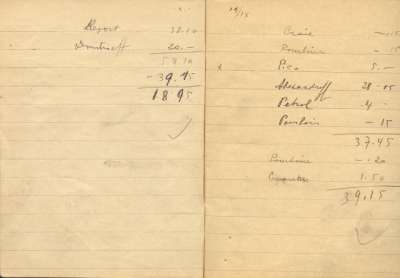 Report 38.10
20.—
58.10
-39.15
18.95
29/15
Craie —.15
— 15
x Pico 5.—
Alexandroff 28.05
Petrol 4 —
Pourboire — 15
37.45
Pourboire —.20
1.50
39.15